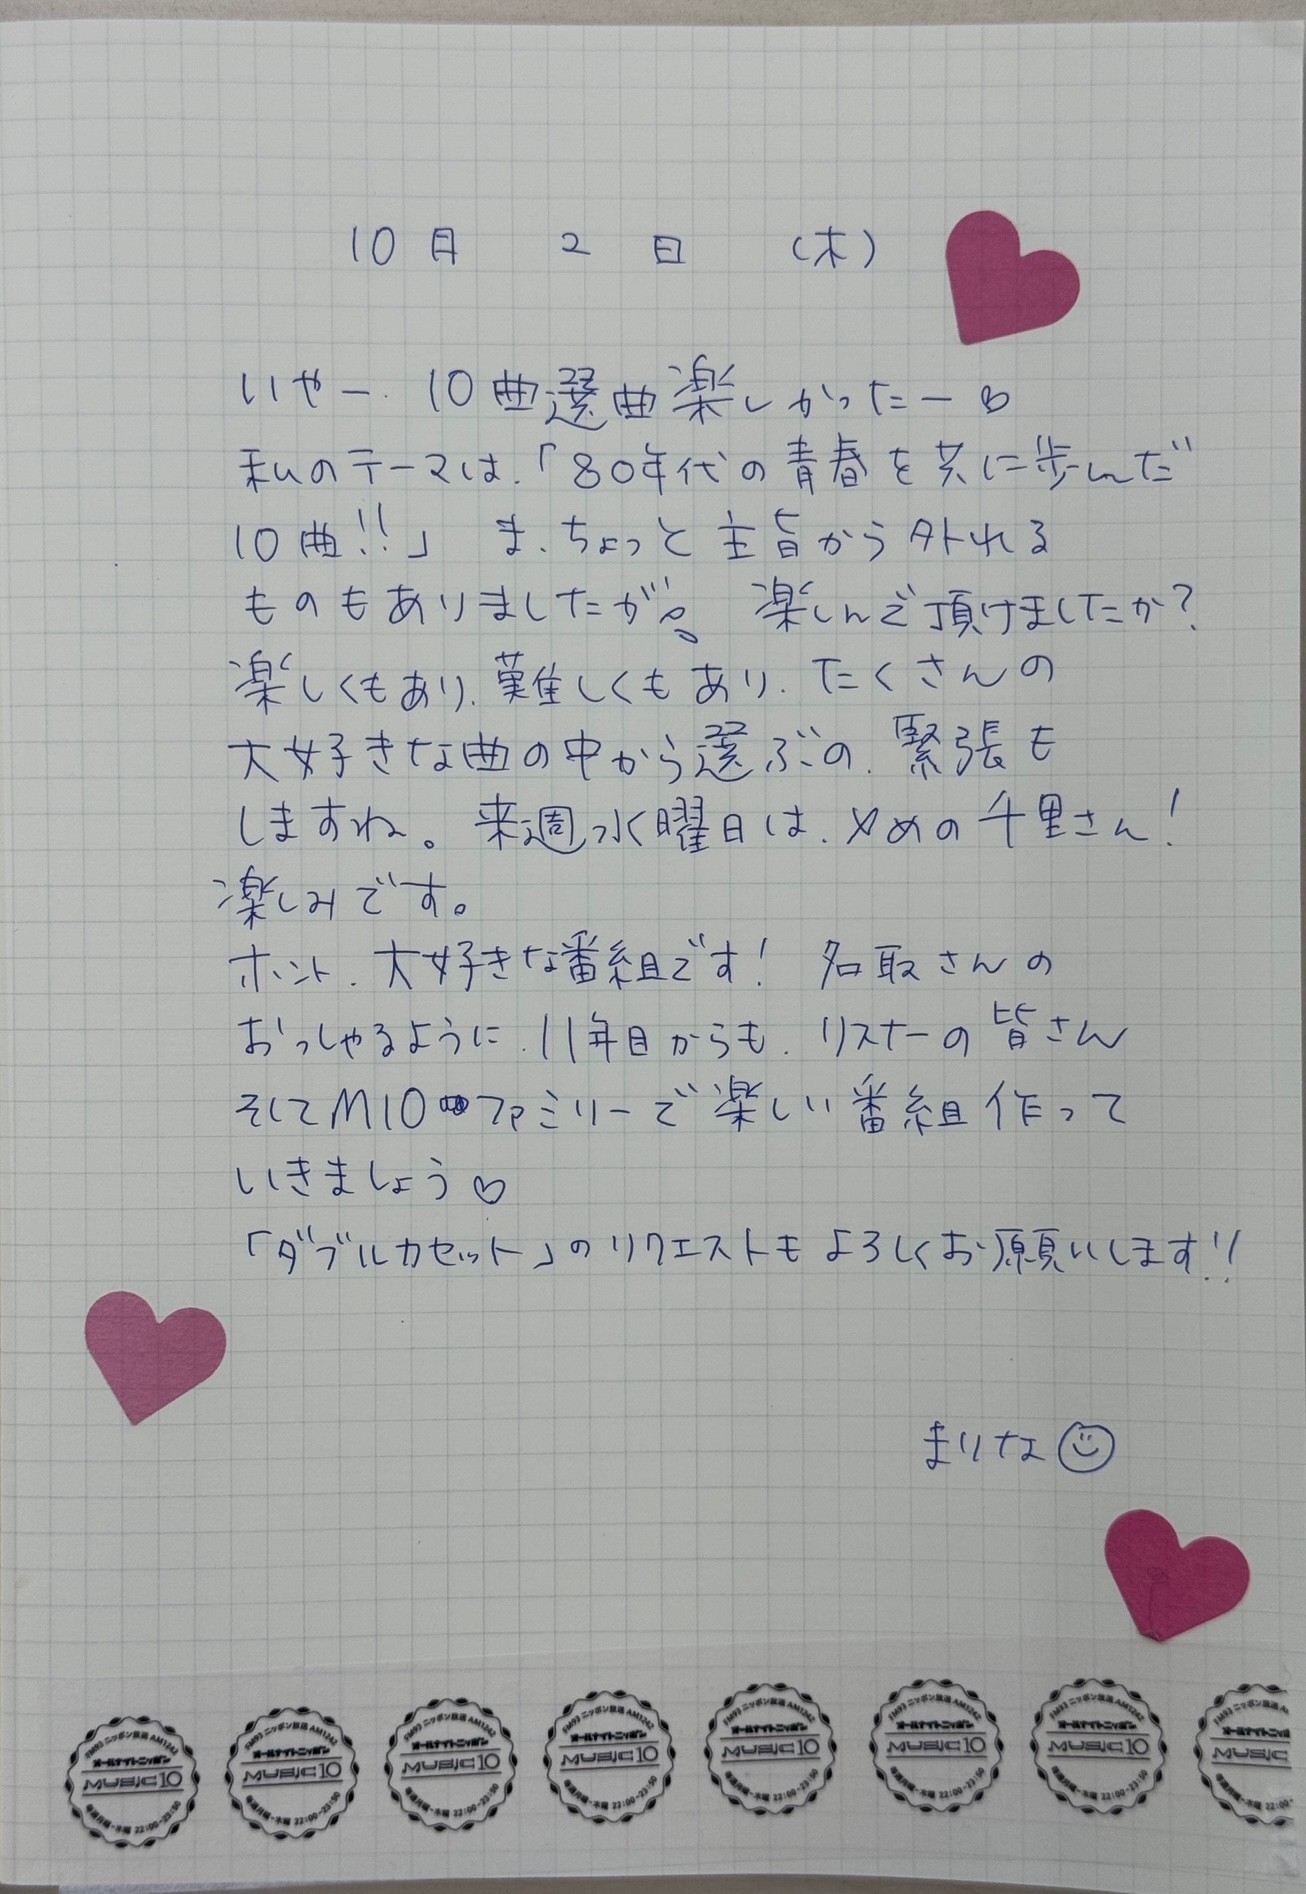 10月 2日 (木)
いやー、10曲選曲楽しかったー♡
私のテーマは、「80年代の青春を共に歩んだ
10曲!!」 ま、ちょっと主旨から外れる
ものもありましたが。 楽しんで頂けましたか?
楽しくもあり、難しくもあり、たくさんの
大好きな曲の中から選ぶの、緊張も
しますね。来週水曜日は、〆めの千里さん!
楽しみです。
ホント、大好きな番組です! 名取さんの
おっしゃるように、11年目からも、リスナーの皆さん
そしてM10ファミリーで楽しい番組作って
いきましょう♡
「ダブルカセット」のリクエストもよろしくお願いします!!
まりな
FM93 ニッポン放送 AM1242
オールナイトニッポン
MUSIC10
毎週月曜-木曜 22:00-23:50
FM93 ニッポン放送 AM1242
オールナイトニッポン
MUSIC10
毎週月曜-木曜 22:00-23:50
FM93 ニッポン放送 AM1242
オールナイトニッポン
MUSIC10
毎週月曜-木曜 22:00-23:50
FM93 ニッポン放送 AM1242
オールナイトニッポン
MUSIC10
毎週月曜-木曜 22:00-23:50
FM93 ニッポン放送 AM1242
オールナイトニッポン
MUSIC10
毎週月曜-木曜 22:00-23:50
FM93 ニッポン放送 AM1242
オールナイトニッポン
MUSIC10
毎週月曜-木曜 22:00-23:50
FM93 ニッポン放送 AM1242
オールナイトニッポン
MUSIC10
毎週月曜-木曜 22:00-23:50
FM93 ニッポン
オールナイトニ
MUSIC
毎週月曜-木曜 22:00-23: